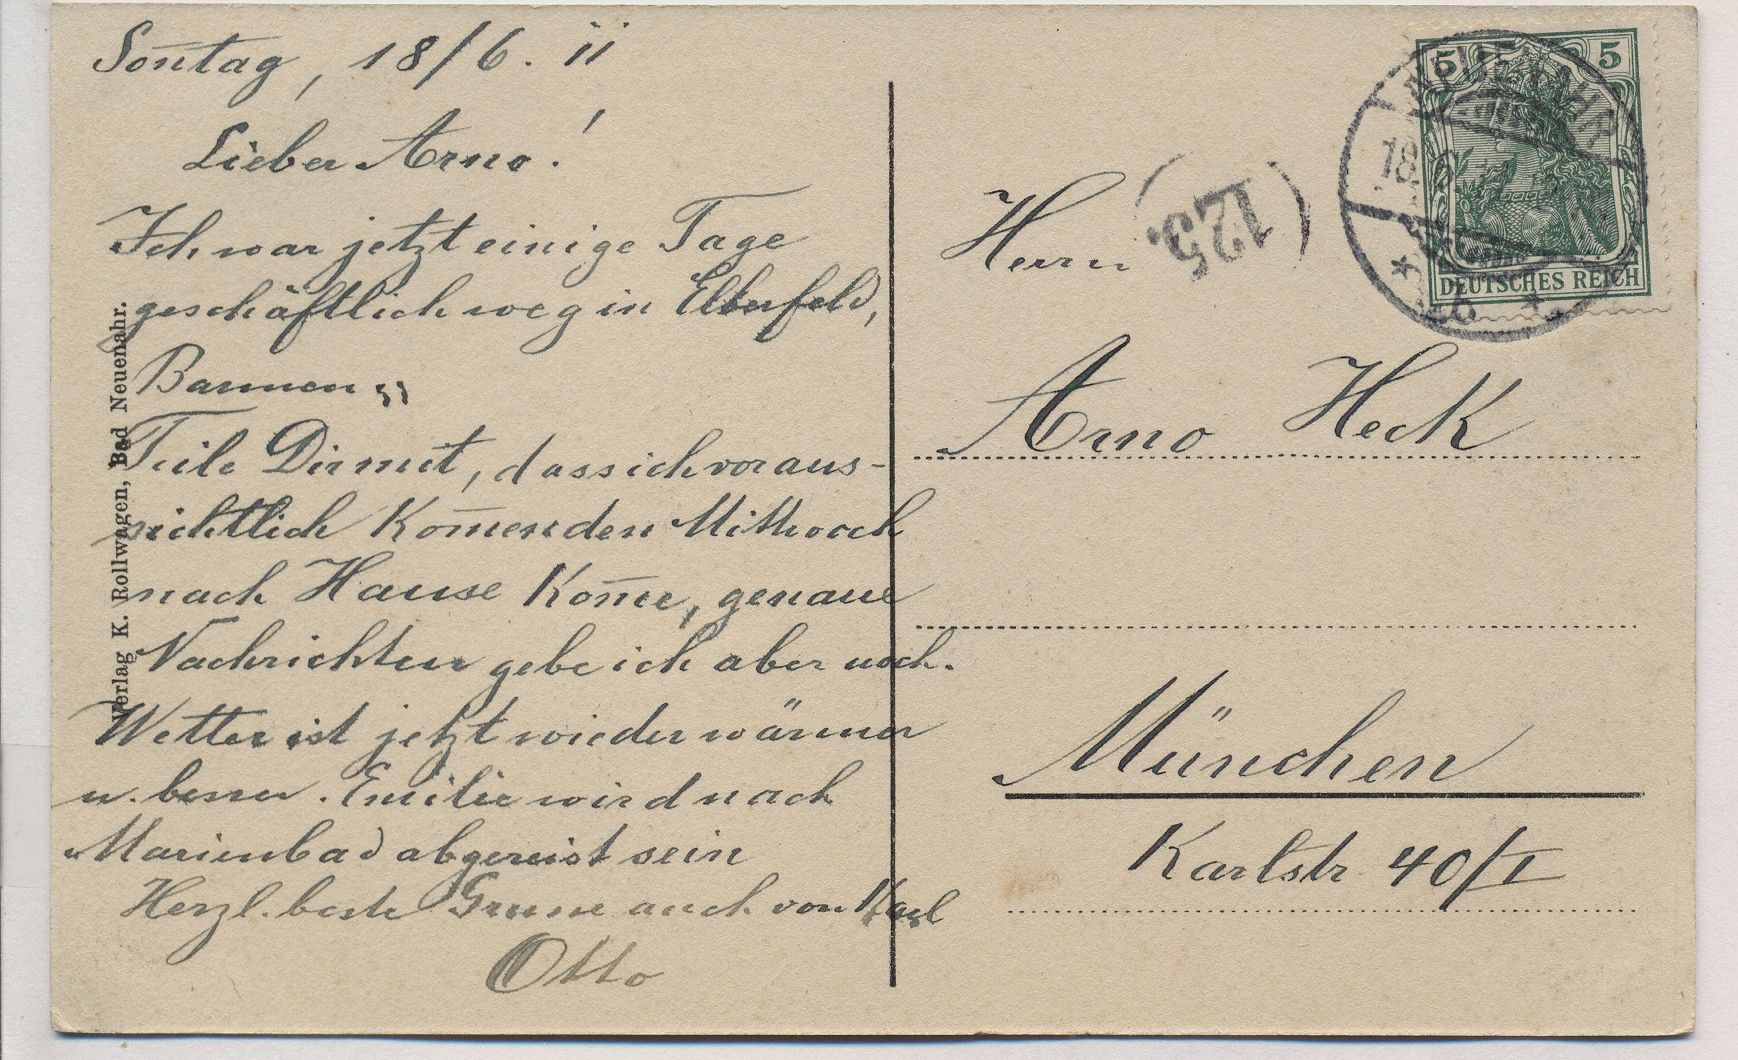 Son̄tag, 18/6. 11
Lieber Arno!
Ich war jetzt einige Tage
geschäftlich weg in Elberfeld,
Barmen
Teile Dir mit, dass ich voraus-
sichtlich kom̄enden Mittwoch
nach Hause kom̄e, genaue
Nachrichten gebe ich aber noch.
Wetter ist jetzt wieder wärmer
u. besser. Emilie wird nach
Marienbad abgereist sein
Herzl. beste Grüsse auch von Karl
Otto
Verlag K. Rollwagen, Bad Neuenahr.
Herrn
Arno Heck
München
Karlstr. 40/I
123.
5 5
DEUTSCHES REICH
NEUENAHR
18